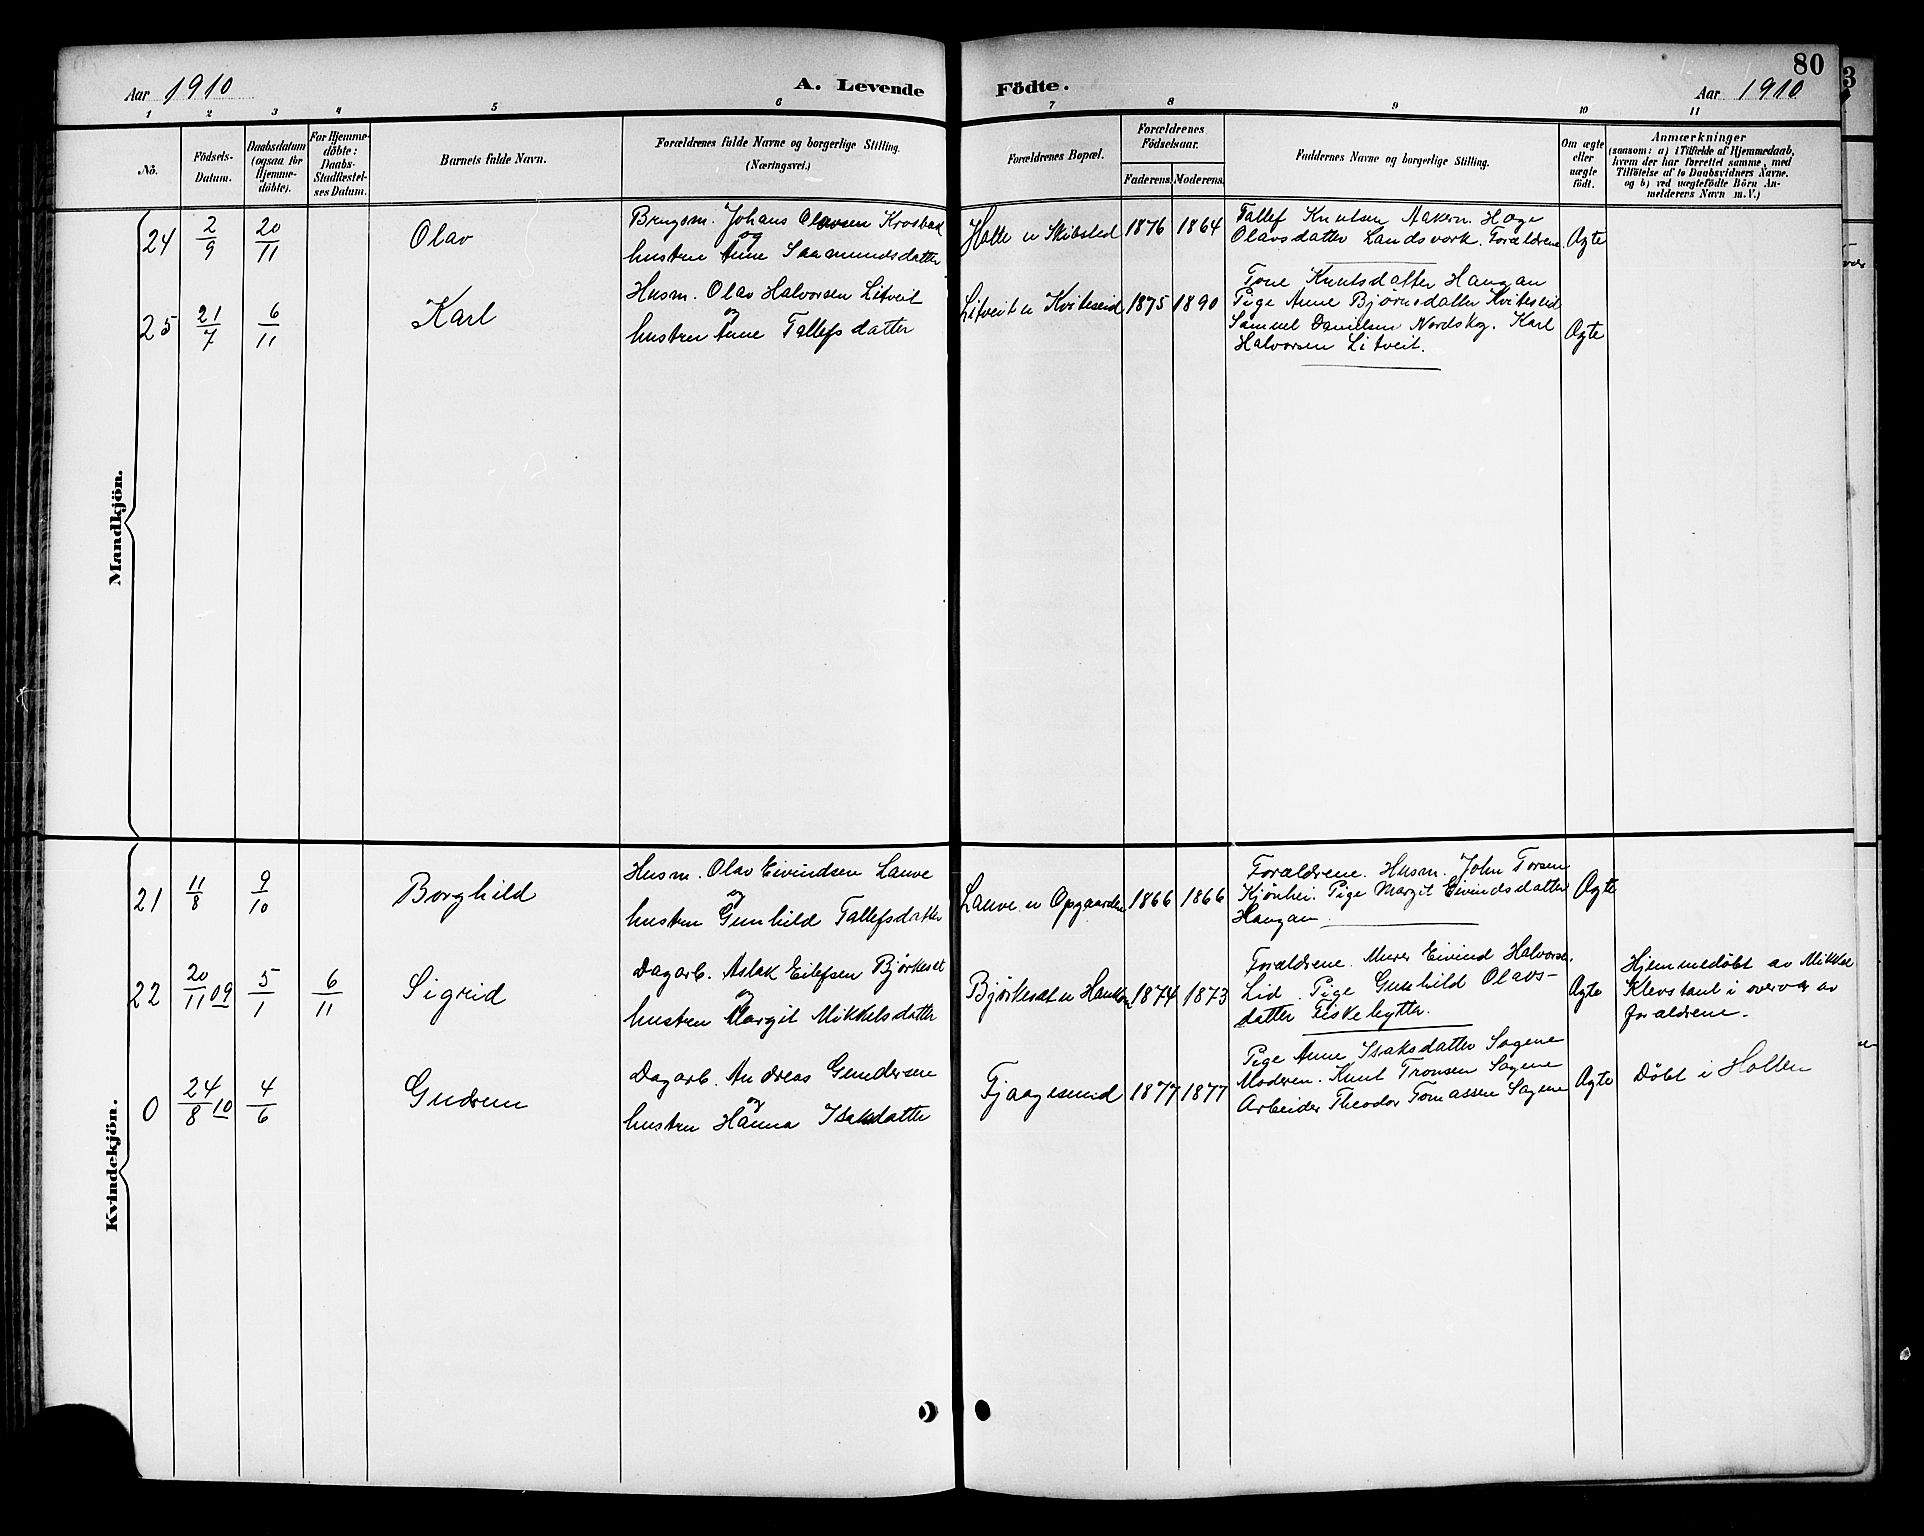 80
Aar 1910
A. Levende Födte.
Aar 1910
1 2 3 4 5 6 7 8 9 10 11
No.
Födsels-
Datum.
Daabsdatum
(ogsaa for
Hjemme-
döbte).
For Hjemme-
döbte:
Daabs-
Stadfæstel-
ses Datum.
Barnets fulde Navn.
Forældrenes fulde Navne og borgerlige Stilling.
(Næringsvei.)
Forældrenes Bopæl.
Forældrenes
Födselsaar.
Faderens.
Moderens.
Faddernes Navne og borgerlige Stilling.
Om ægte
eller
uægte
født.
Anmærkninger
(saasom: a) i Tilfælde af Hjemmedaab,
hvem der har forrettet samme, med
Tilföielse af to Daabsvidners Navne,
og b) ved uægtefödte Börn An-
melderens Navn m. V.)
Mandkjön.
24
2/9
20/11
Olav
Brugsm. Johans Olavsen Krosbak
og
hustru Anne Saamundsdatter
Holte u Skibsted
1876
1864
Tallef Knutsen Aakern. Hæge
Olavsdatter Landsverk. Forældrene
Ægte
25
21/7
6/11
Karl
Husm. Olav Halvorsen Litveit
og
hustru Anne Tallefsdatter
Litveit u Kviteseid
1875
1890
Tone Knutsdatter Haugan
Pige Anne Bjørnsdatter Kviteseid
Samuel Danielsen Nordskog. Karl
Halvorsen Litveit.
Ægte
Kvindekjön.
21
11/8
9/10
Borghild
Husm. Olav Eivindsen Lauve
og
hustru Gunhild Tallefsdatter
Lauve u Opgaarden
1866
1866
Forældrene. Husm. John Torsen
Kjønhei. Pige Margit Eivindsdatter
Haugan
Ægte
22
20/11 09
5/1
6/11
Sigrid
Dagarb. Aslak Eilefsen Bjørkeset
og
hustru Margit Mikkelsdatter
Bjørkesæt u Haukom
1874
1873
Forældrene. Murer Eivind Halvors.
Lid. Pige Gunhild Olavs-
datter Fiskebytter.
Ægte
Hjemmedøbt av Mikkel
Klevstaul i overvær av
forældrene.
0
24/8 10
4/6
Gudrun
Dagarb. Andreas Gundersen
og
hustru Hanna Isaksdatter
Fjaagesund
1877
1877
Pige Anne Isaksdatter Sagene
Moderen. Knut Tronsen Sagene
Arbeider Theodor Tomassen Sagene
Ægte
Døbt i Hollen